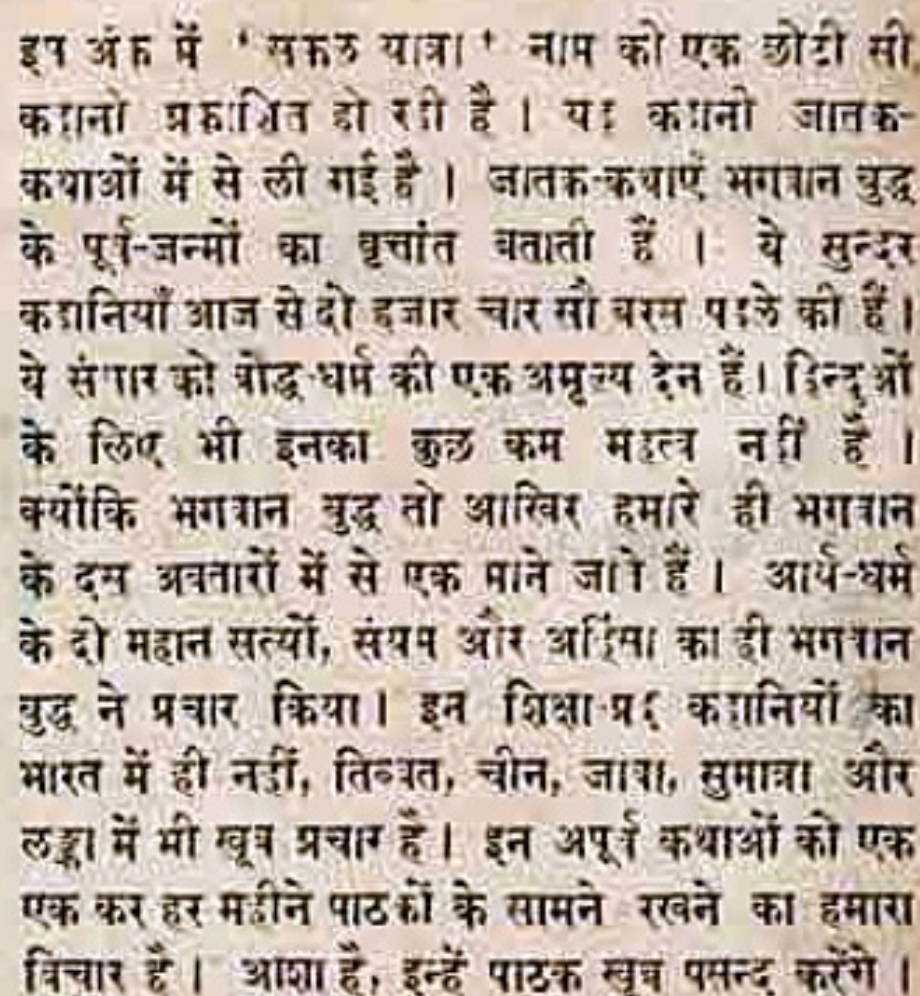 इस अंक में 'सफल यात्रा' नाम की एक छोटी सी
कहानी प्रकाशित हो रही है। यह कहानी जातक-
कथाओं में से ली गई है। जातक-कथाएँ भगवान बुद्ध
के पूर्व-जन्मों का वृत्तांत बताती हैं। ये सुन्दर
कहानियाँ आज से दो हजार चार सौ बरस पहले की हैं।
ये संसार को बौद्ध-धर्म की एक अमूल्य देन हैं। हिन्दुओं
के लिए भी इनका कुछ कम महत्व नहीं है।
क्योंकि भगवान बुद्ध तो आखिर हमारे ही भगवान
के दस अवतारों में से एक माने जाते हैं। आर्य-धर्म
के दो महान सत्यों, संयम और अहिंसा का ही भगवान
बुद्ध ने प्रचार किया। इन शिक्षा-प्रद कहानियों का
भारत में ही नहीं, तिब्बत, चीन, जावा, सुमात्रा और
लङ्का में भी खूब प्रचार है। इन अपूर्व कथाओं को एक
एक कर हर महीने पाठकों के सामने रखने का हमारा
विचार है। आशा है, इन्हें पाठक खूब पसन्द करेंगे।